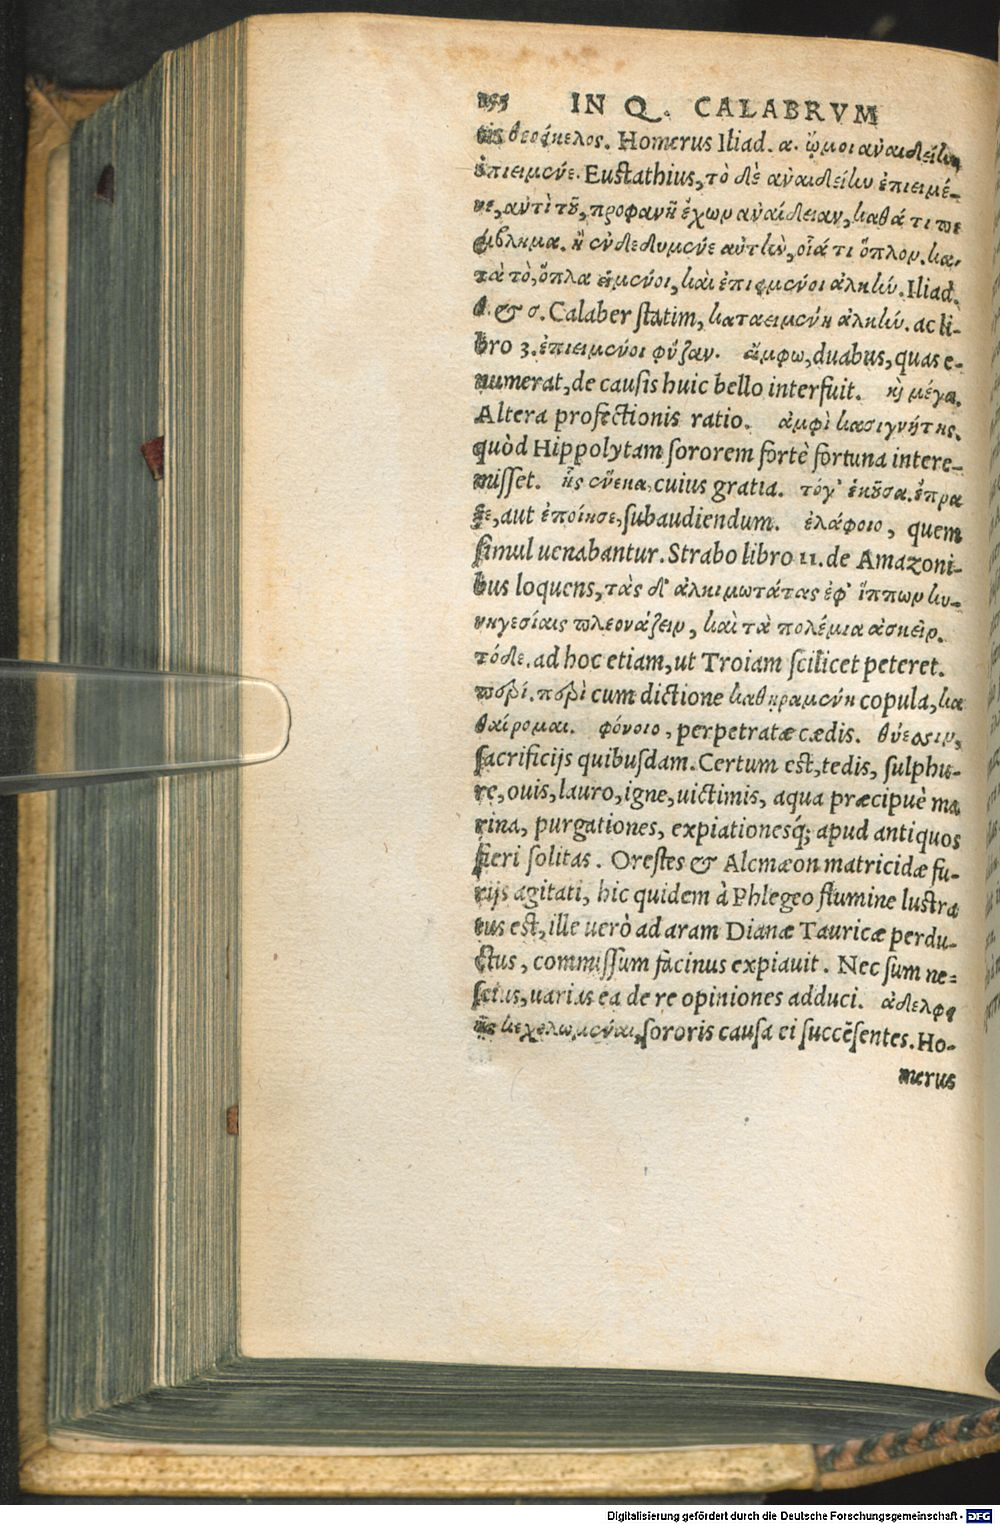 IN Q. CALABRVM
θεοείκελος. Homerus Iliad. α. ὤμοι ἀναιδείην
ἐπιειμένε. Eustathius, τὸ δὲ ἀναιδείην ἐπιειμέ-
νε, ἀντὶ τοῦ, προφανῆ ἔχων ἀναίδειαν, καθά τι πε
ρίβλημα. ἢ ἐνδεδυμένε αὐτὴν, οἷά τι ὅπλον. κα-
τὰ τὸ, ὅπλα εἱμένοι, καὶ ἐπιειμένοι ἀλκήν. Iliad.
θ. & σ. Calaber statim, καταειμένη ἀλκήν. ac li-
bro 3. ἐπιειμένοι φύζαν. ἄμφω, duabus, quas e-
numerat, de causis huic bello interfuit. καὶ μέγα.
Altera profectionis ratio. ἀμφὶ κασιγνήτης.
quòd Hippolytam sororem fortè fortuna intere-
misset. ἧς ἕνεκα, cuius gratia. τόγ' ἑκοῦσα. ἔπρα
ξε, aut ἐποίησε, subaudiendum. ἐλάφοιο, quem
simul uenabantur. Strabo libro 11. de Amazoni-
bus loquens, τὰς δ' ἀλκιμωτάτας ἐφ' ἵππων κυ-
νηγεσίαις πλεονάζειν, καὶ τὰ πολέμια ἀσκεῖν.
τόδε. ad hoc etiam, ut Troiam scilicet peteret.
περί. περὶ cum dictione καθηραμένη copula, κα
θαίρομαι. φόνοιο, perpetratæ cædis. θύεσσιν,
sacrificijs quibusdam. Certum est, tedis, sulphu-
re, ouis, lauro, igne, uictimis, aqua præcipuè ma
rina, purgationes, expiationesq́; apud antiquos
fieri solitas. Orestes & Alcmæon matricidæ fu-
rijs agitati, hic quidem à Phlegeo flumine lustra
tus est, ille uerò ad aram Dianæ Tauricæ perdu-
ctus, commissum facinus expiauit. Nec sum ne-
scius, uarias ea de re opiniones adduci. ἀδελφε
ῆς κεχολωμέναι, sororis causa ei succēsentes. Ho-
merus
Digitalisierung gefördert durch die Deutsche Forschungsgemeinschaft - DFG